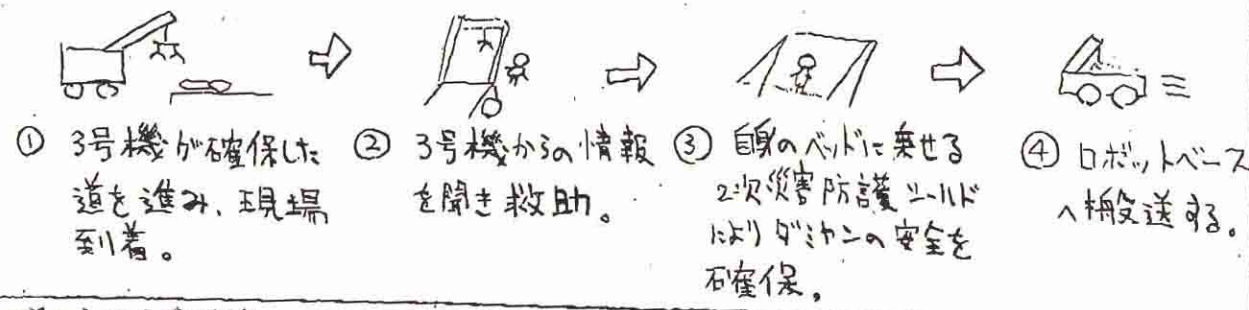 ① 3号機が確保した
道を進み、現場
到着。
② 3号機からの情報
を聞き救助。
③ 自身のベッドに乗せる
2次災害防護シールド
によりダミヤンの安全を
確保。
④ ロボットベース
へ搬送する。